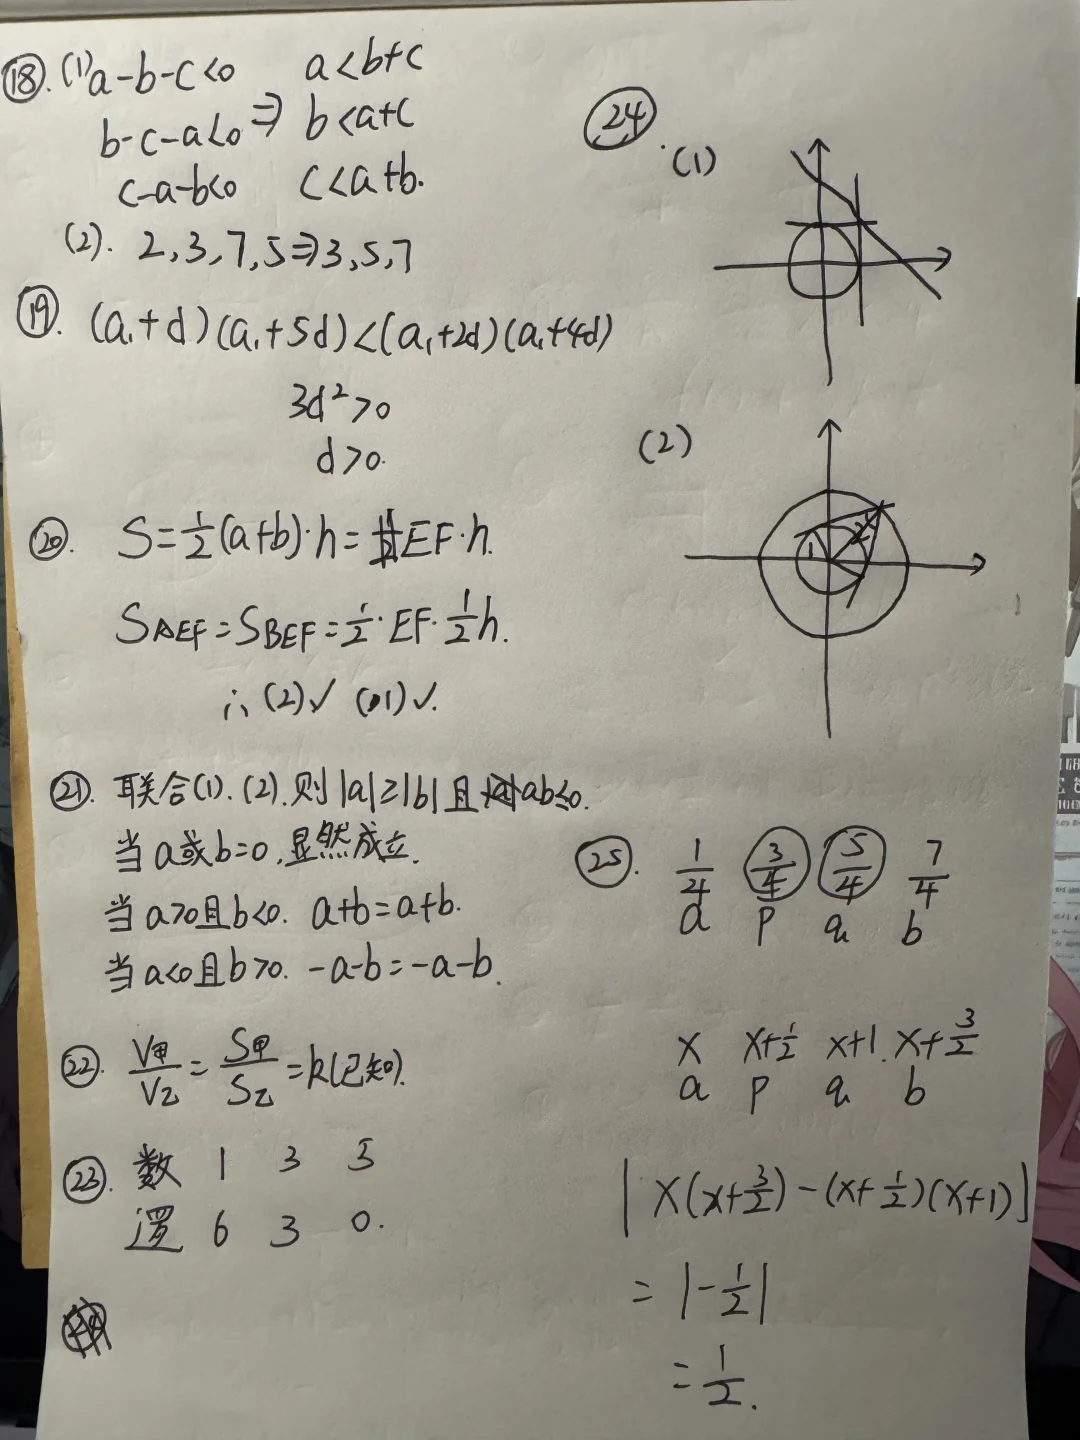 ⑱. (1) a-b-c<0 a<b+c
b-c-a<0 ⇒ b<a+c
c-a-b<0 c<a+b.
(2). 2,3,7,5⇒3,5,7
⑲. (a₁+d)(a₁+5d)<(a₁+2d)(a₁+4d)
3d²>0
d>0.
⑳. S=1/2(a+b)·h=EF·h.
S AEF = S BEF = 1/2·EF·1/2h.
∴ (2)✓ (1)✓.
㉑. 联合(1).(2).则|a|≥|b|且ab≤0.
当a或b=0,显然成立.
当a>0且b<0. a+b=a+b.
当a<0且b>0. -a-b=-a-b.
㉒. V甲/V乙=S甲/S乙=k(已知).
㉓. 数 1 3 5
逻 6 3 0.
㉔.(1)
(2)
1 2
㉕. 1/4 3/4 5/4 7/4
a p q b
x x+1/2 x+1. x+3/2
a p q b
|x(x+3/2)-(x+1/2)(x+1)|
=|-1/2|
=1/2.